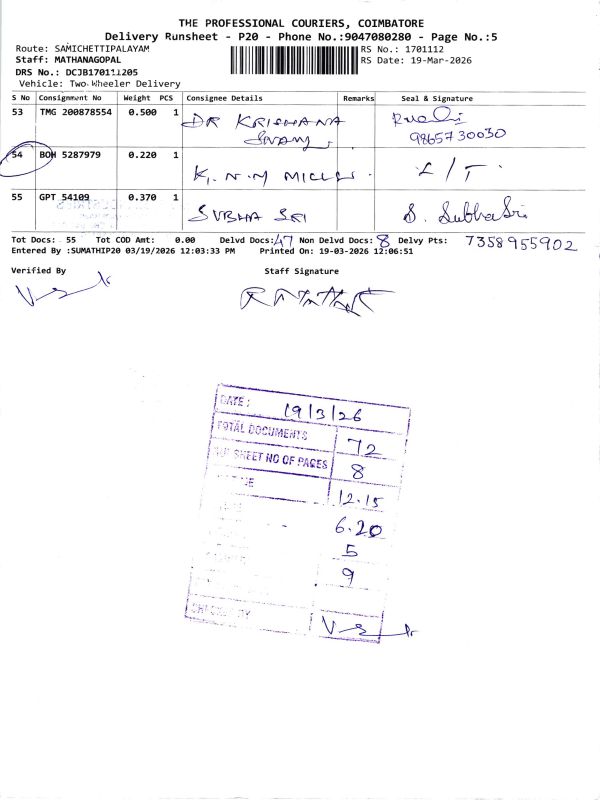 THE PROFESSIONAL COURIERS, COIMBATORE
Delivery Runsheet - P20 - Phone No.:9047080280 - Page No.:5
Route: SAMICHETTIPALAYAM
RS No.: 1701112
Staff: MATHANAGOPAL
RS Date: 19-Mar-2026
DRS No.: DCJB170111205
Vehicle: Two Wheeler Delivery
S No Consignment No Weight PCS Consignee Details Remarks Seal & Signature
53 TMG 200878554 0.500 1 DR KRISHANA
9865730030
54 BOH 5287979 0.220 1 K. N. M MILLS. L/T.
55 GPT 54109 0.370 1 SUBHA SRI S. SubhaSri
Tot Docs: 55 Tot COD Amt: 0.00 Delvd Docs: 47 Non Delvd Docs: 8 Delvy Pts: 7358955902
Entered By :SUMATHIP20 03/19/2026 12:03:33 PM Printed On: 19-03-2026 12:06:51
Verified By Staff Signature
DATE: 19/3/26
TOTAL DOCUMENTS 72
SHEET NO OF PAGES 8
12.15
6.20
5
9